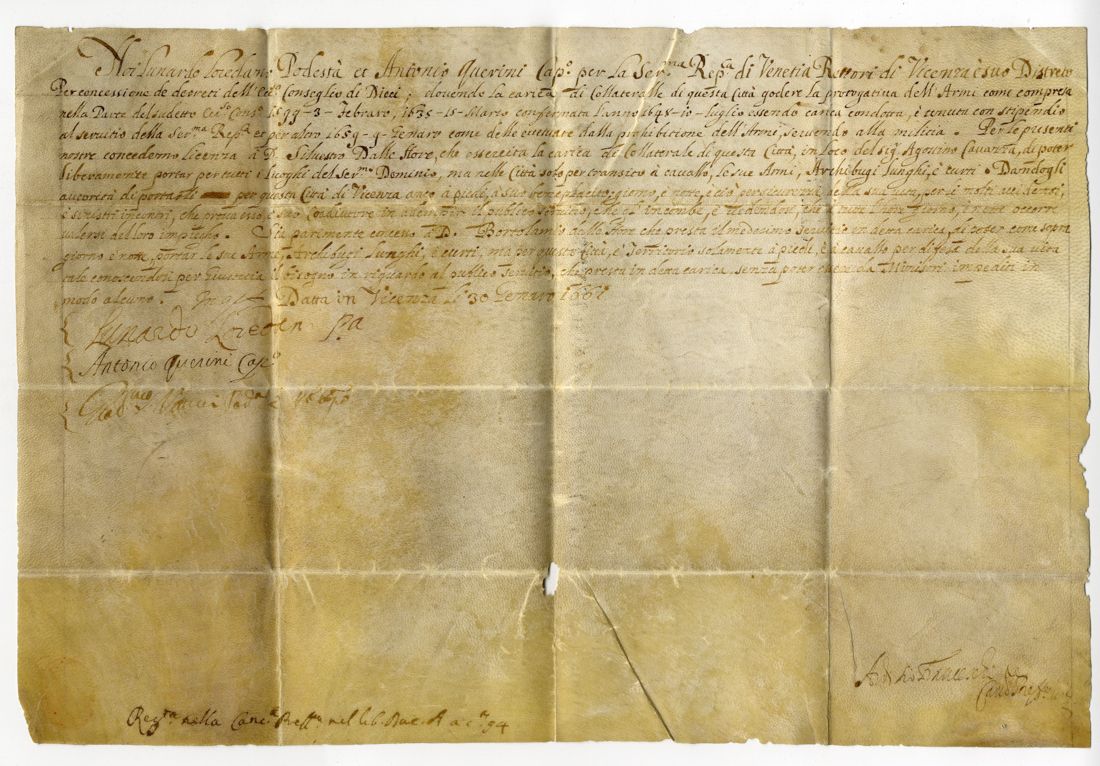 Noi Lunardo Loredano Podestà et Antonio Querini Cap.o per La Ser.ma Rep.ca di Venetia Rettori di Vicenza è suo Distreto
Per concessione de decreti dell' Ecc.mo Conseglio di Dieci, dovendo la carica di Collateralle di questa Città godere la prerogatiua dell' Armi come compresa
nella Parte del sudetto Cons.o 3 Febraro, 1635 15 Marzo confermata l'anno 1648 10 luglio essendo carica condotta, è tenuta con stipendio
al seruitio della Ser.ma Rep.ca et per altro 1659 9 Genaro come delle eccettuate dalla prohibitione dell' Armi, seruendo alla militia. Per le presenti
nostre concedemo licenza à D. Siluestro Dalle Hore, che essercita la carica di Collaterale di questa Città, in loco del sig. Agostino Cauanza, di poter
liberamente portar per tutti i Luoghi del Ser.mo Dominio, ma nelle Città solo per transito à cauallo, le sue Armi, Archibugi lunghi, è curti. Dandogli
auttorità di portarli per questa Città di Vicenza anco à piedi, à suo beneplacito, giorno, è notte, e ciò per sicurezza della sua uita, per i molti
è sinistri incontri, che il publico seruitio, che gl' incombe, è giorno, è notte occorre
ualersi del loro impiegho. Sia parimente concesso à D. Bortolamio dalle Hore che presta il medesimo Seruitio in detta carica, di poter come sopra
giorno è notte, portar le sue Armi, Archibugi lunghi, è curti, ma per questa Città, è Territorio solamente à piedi, è à cauallo per difesa della sua uita
tale conoscendosi per il bisogno in riguardo al publico Seruitio, che presta in detta carica, senza poter esser da Ministri impediti in
modo alcuno. Datta in Vicenza li 30 Genaro 1661
Lunardo Loredan P.a
Antonio Querini Cap.o
Reg.ta nella Canc.a Pref.a nel lib. A a c. 94